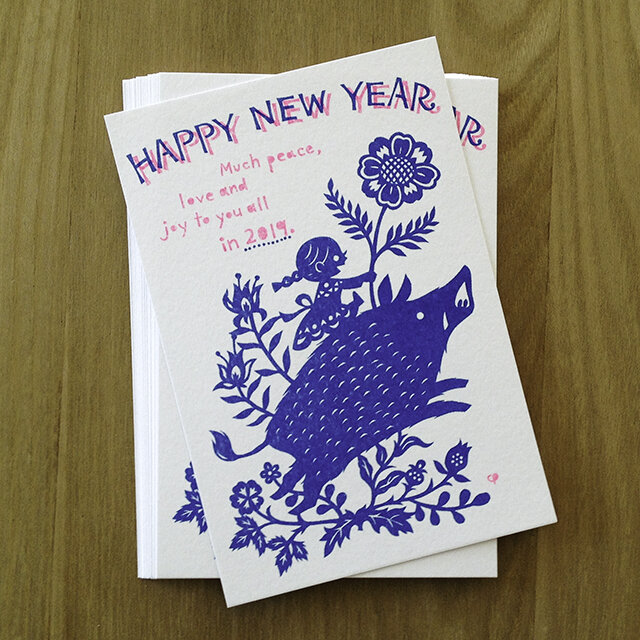 HAPPY NEW YEAR
Much peace,
love and
joy to you all
in 2019.
AR